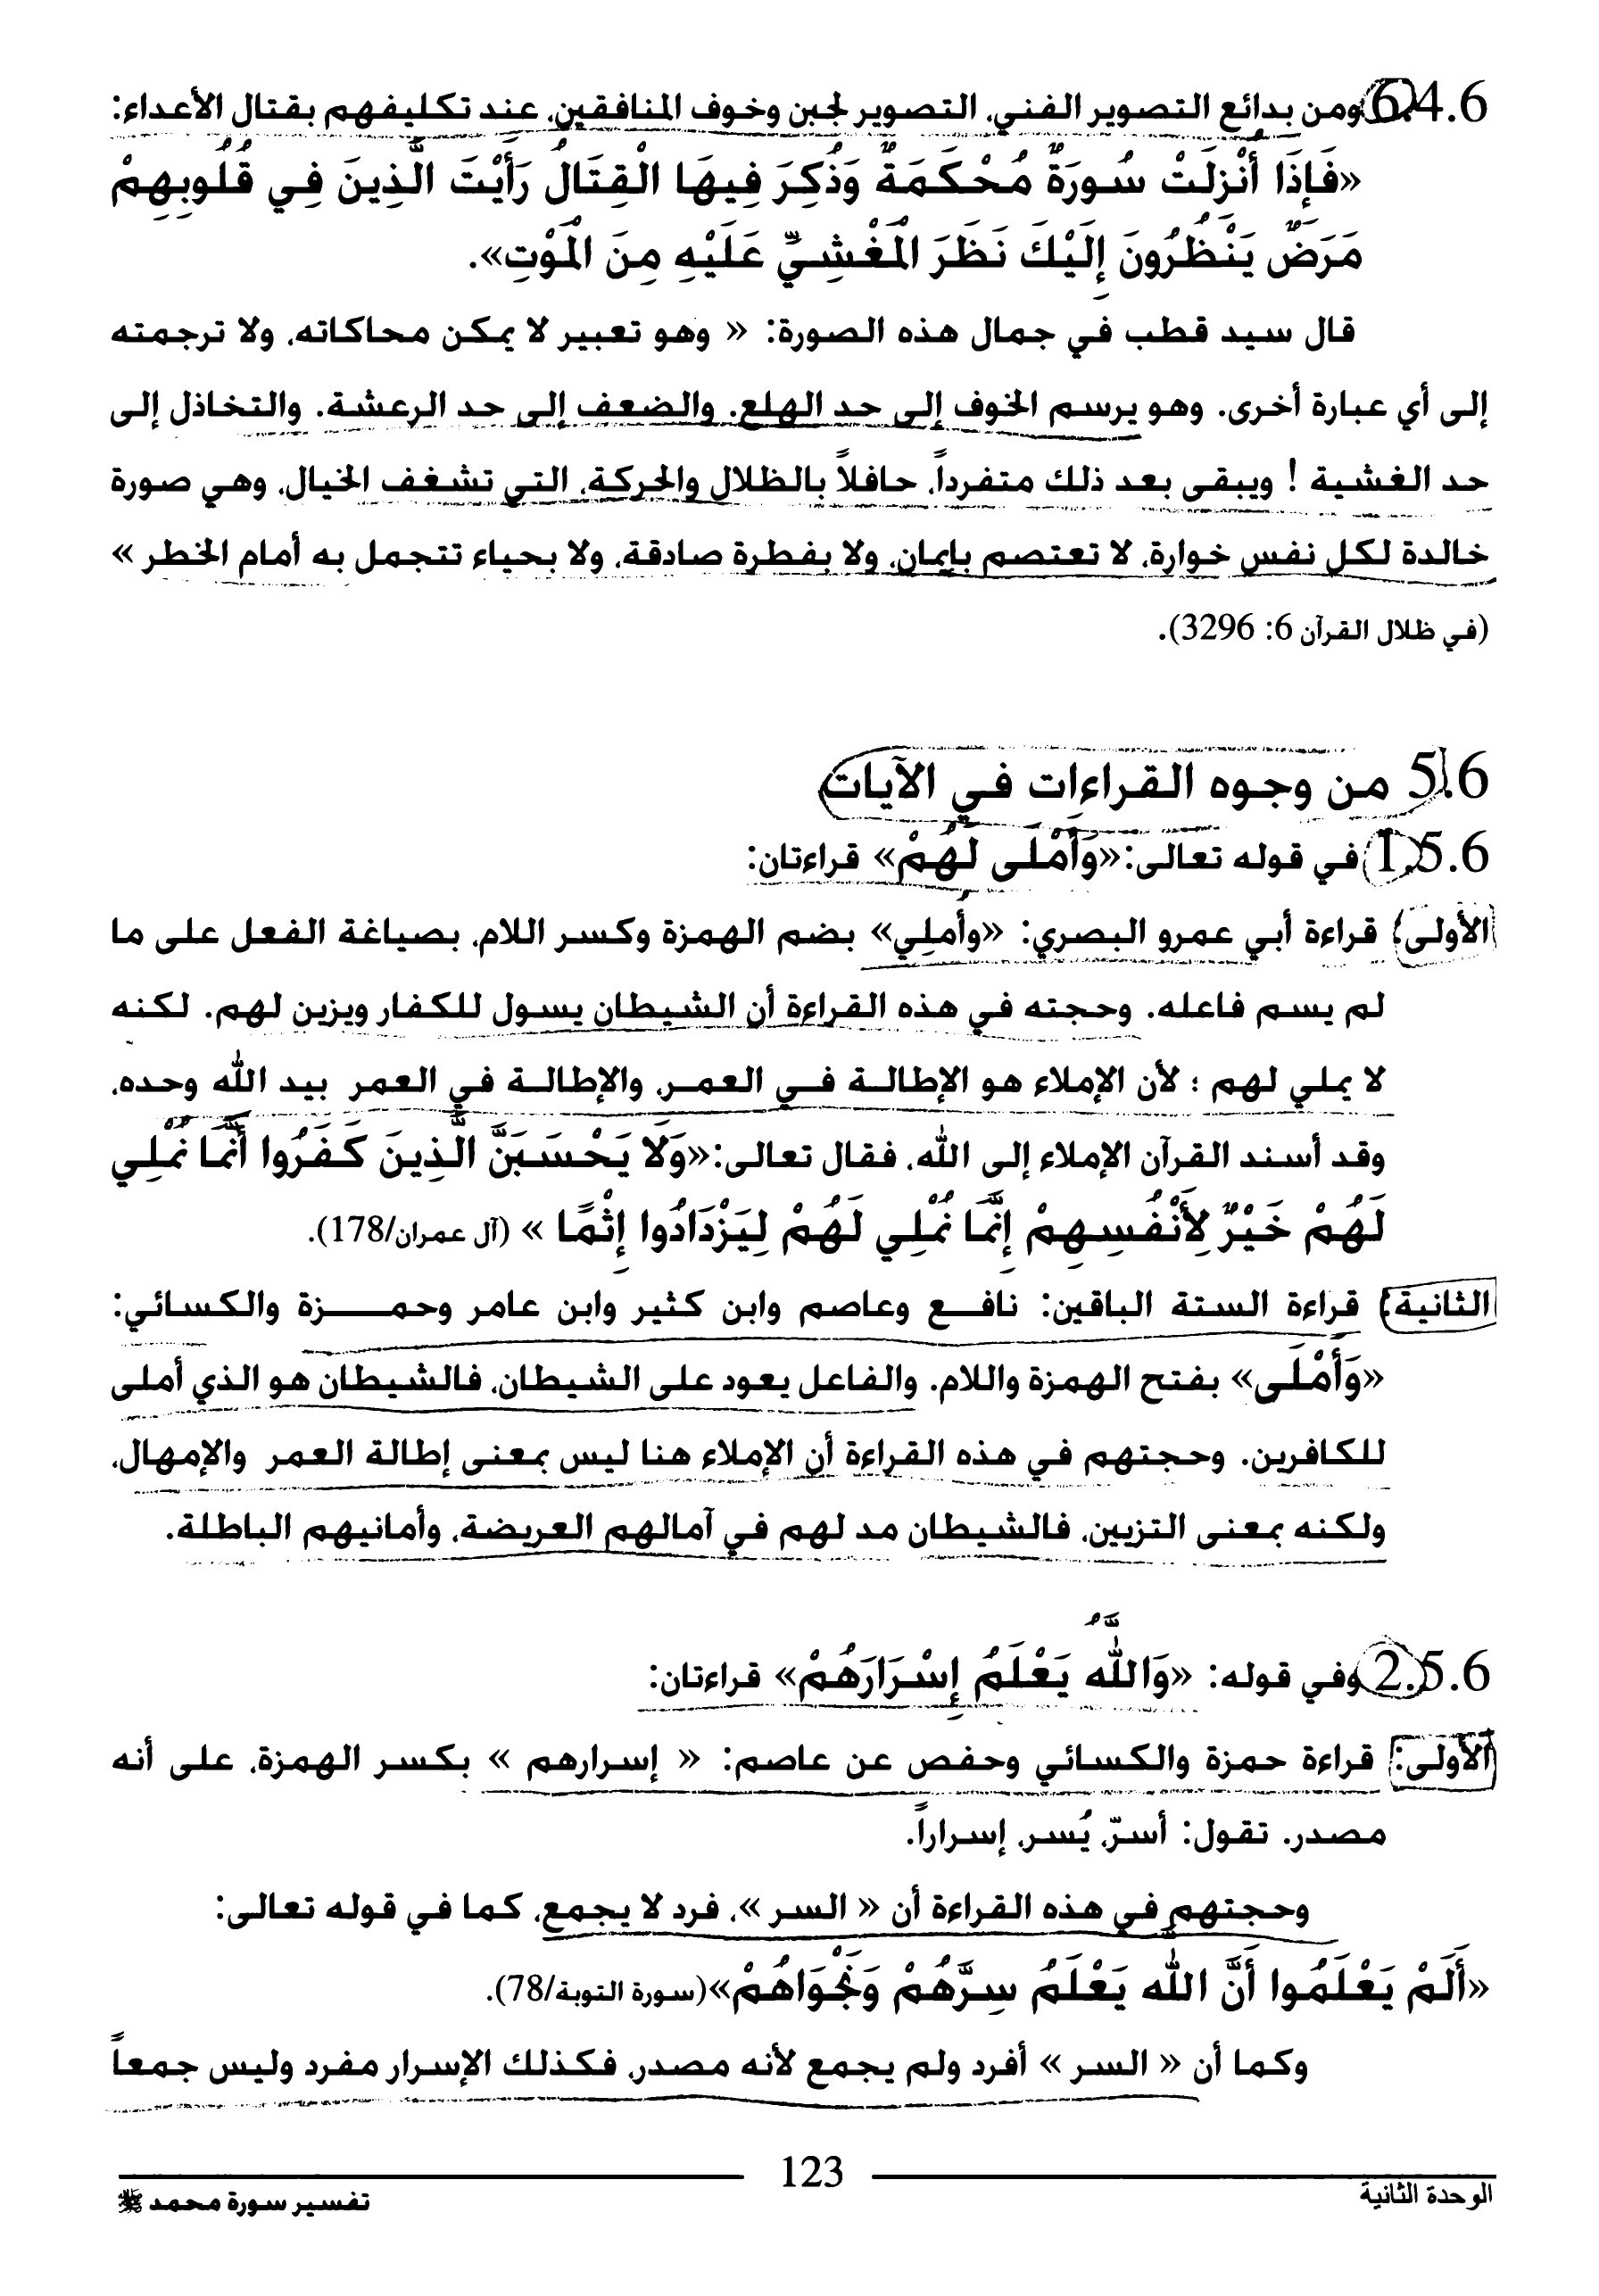 6.4.6 ومن بدائع التصوير الفني، التصوير لجبن وخوف المنافقين، عند تكليفهم بقتال الأعداء:
«فَإِذَا أُنْزِلَتْ سُورَةٌ مُحْكَمَةٌ وَذُكِرَ فِيهَا الْقِتَالُ رَأَيْتَ الَّذِينَ فِي قُلُوبِهِمْ
مَرَضٌ يَنْظُرُونَ إِلَيْكَ نَظَرَ الْمَغْشِيِّ عَلَيْهِ مِنَ الْمَوْتِ».
قال سيد قطب في جمال هذه الصورة: « وهو تعبير لا يمكن محاكاته، ولا ترجمته
إلى أي عبارة أخرى. وهو يرسم الخوف إلى حد الهلع. والضعف إلى حد الرعشة. والتخاذل إلى
حد الغشية ! ويبقى بعد ذلك متفرداً، حافلاً بالظلال والحركة، التي تشغف الخيال، وهي صورة
خالدة لكل نفس خوارة، لا تعتصم بإيمان، ولا بفطرة صادقة، ولا بحياء تتجمل به أمام الخطر »
(في ظلال القرآن 6: 3296).
5.6 من وجوه القراءات في الآيات
1.5.6 في قوله تعالى:«وَأَمْلَى لَهُمْ» قراءتان:
الأولى: قراءة أبي عمرو البصري: «وأملِي» بضم الهمزة وكسر اللام، بصياغة الفعل على ما
لم يسم فاعله. وحجته في هذه القراءة أن الشيطان يسول للكفار ويزين لهم. لكنه
لا يملي لهم ؛ لأن الإملاء هو الإطالة في العمر، والإطالة في العمر بيد الله وحده،
وقد أسند القرآن الإملاء إلى الله، فقال تعالى:«وَلَا يَحْسَبَنَّ الَّذِينَ كَفَرُوا أَنَّمَا نُمْلِي
لَهُمْ خَيْرٌ لِأَنْفُسِهِمْ إِنَّمَا نُمْلِي لَهُمْ لِيَزْدَادُوا إِثْمًا » (آل عمران/178).
الثانية: قراءة الستة الباقين: نافع وعاصم وابن كثير وابن عامر وحمزة والكسائي:
«وَأَمْلَى» بفتح الهمزة واللام. والفاعل يعود على الشيطان، فالشيطان هو الذي أملى
للكافرين. وحجتهم في هذه القراءة أن الإملاء هنا ليس بمعنى إطالة العمر والإمهال،
ولكنه بمعنى التزيين، فالشيطان مد لهم في آمالهم العريضة، وأمانيهم الباطلة.
2.5.6 وفي قوله: «وَاللَّهُ يَعْلَمُ إِسْرَارَهُمْ» قراءتان:
الأولى: قراءة حمزة والكسائي وحفص عن عاصم: « إسرارهم » بكسر الهمزة، على أنه
مصدر. تقول: أسرّ، يُسر، إسراراً.
وحجتهم في هذه القراءة أن « السر »، فرد لا يجمع، كما في قوله تعالى:
«أَلَمْ يَعْلَمُوا أَنَّ اللَّهَ يَعْلَمُ سِرَّهُمْ وَنَجْوَاهُمْ»(سورة التوبة/78).
وكما أن « السر » أفرد ولم يجمع لأنه مصدر، فكذلك الإسرار مفرد وليس جمعاً
123
الوحدة الثانية
تفسير سورة محمد ﷺ